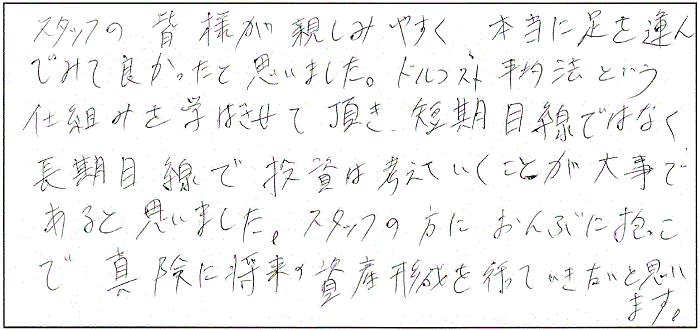 スタッフの皆様が親しみやすく 本当に足を運ん
でみて良かったと思いました。ドルコスト平均法という
仕組みを学ばさせて頂き、短期目線ではなく
長期目線で投資は考えていくことが大事で
あると思いました。スタッフの方におんぶに抱っこ
で真険に将来の資産形成を行っていきたいと思い
ます。